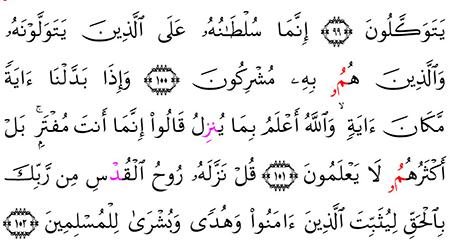 يَتَوَكَّلُونَ ﴿٩٩﴾ إِنَّمَا سُلْطَـٰنُهُۥ عَلَى ٱلَّذِينَ يَتَوَلَّوْنَهُۥ
وَٱلَّذِينَ هُمُۥ بِهِۦ مُشْرِكُونَ ﴿١٠٠﴾ وَإِذَا بَدَّلْنَا ءَايَةً
مَّكَانَ ءَايَةٍۙ وَٱللَّهُ أَعْلَمُ بِمَا يُنزِلُ قَالُوٓا۟ إِنَّمَا أَنتَ مُفْتَرٍۭۚ بَلْ
أَكْثَرُهُمُۥ لَا يَعْلَمُونَ ﴿١٠١﴾ قُلْ نَزَّلَهُۥ رُوحُ ٱلْقُدْسِ مِن رَّبِّكَ
بِٱلْحَقِّ لِيُثَبِّتَ ٱلَّذِينَ ءَامَنُوا۟ وَهُدًى وَبُشْرَىٰ لِلْمُسْلِمِينَ ﴿١٠٢﴾